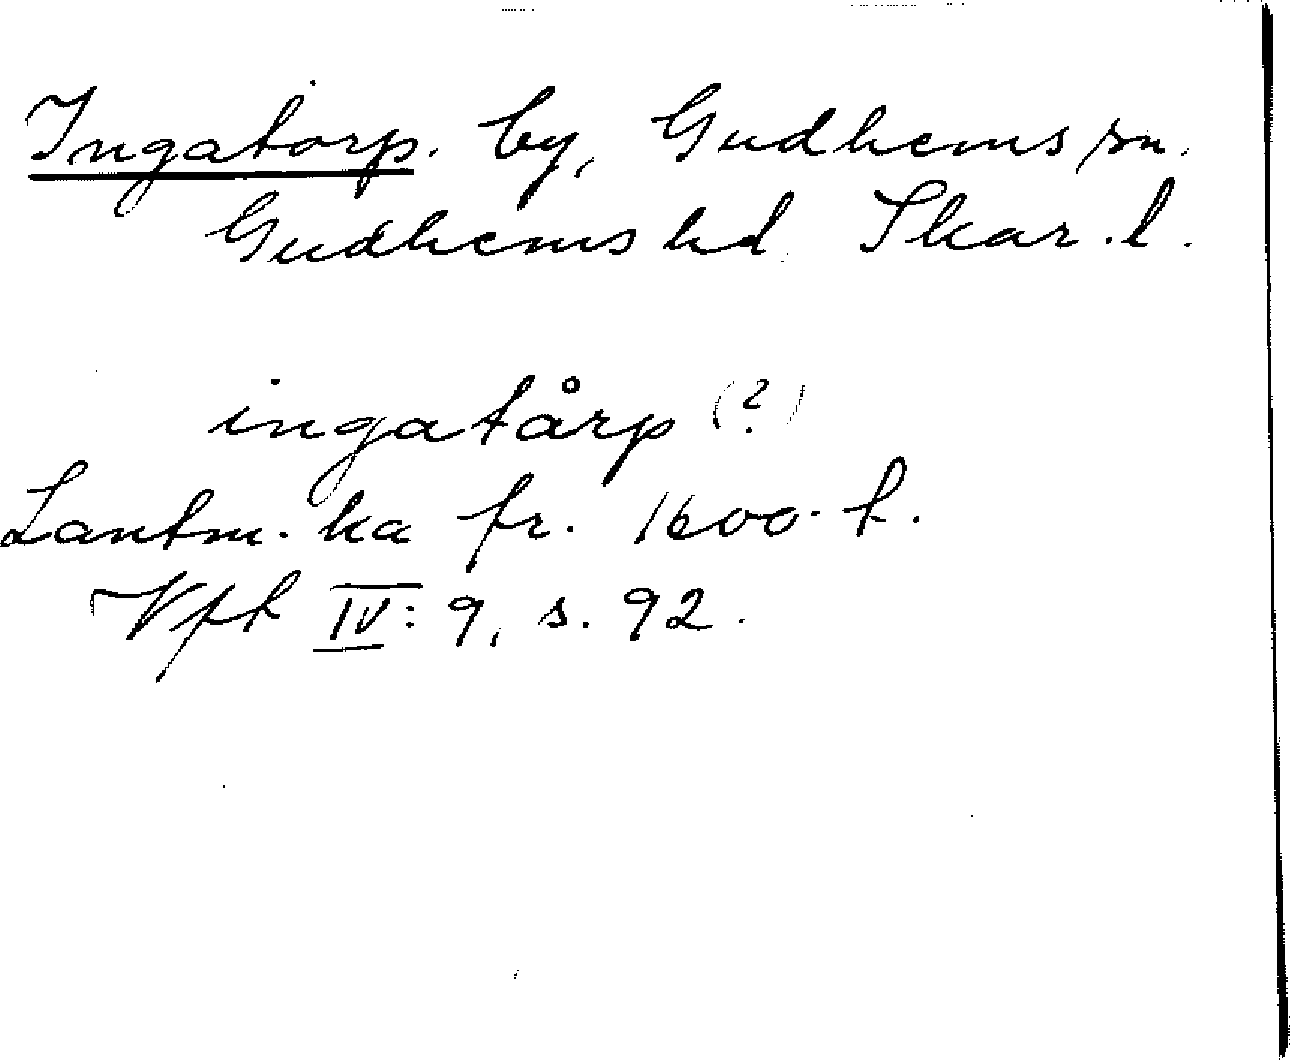 Ingatorp. by, Gudhems sn.
Gudhems hd. Skar. l.
ingatårp (?)
Lantm. ka fr. 1600-t.
Vft IV: 9, s. 92.